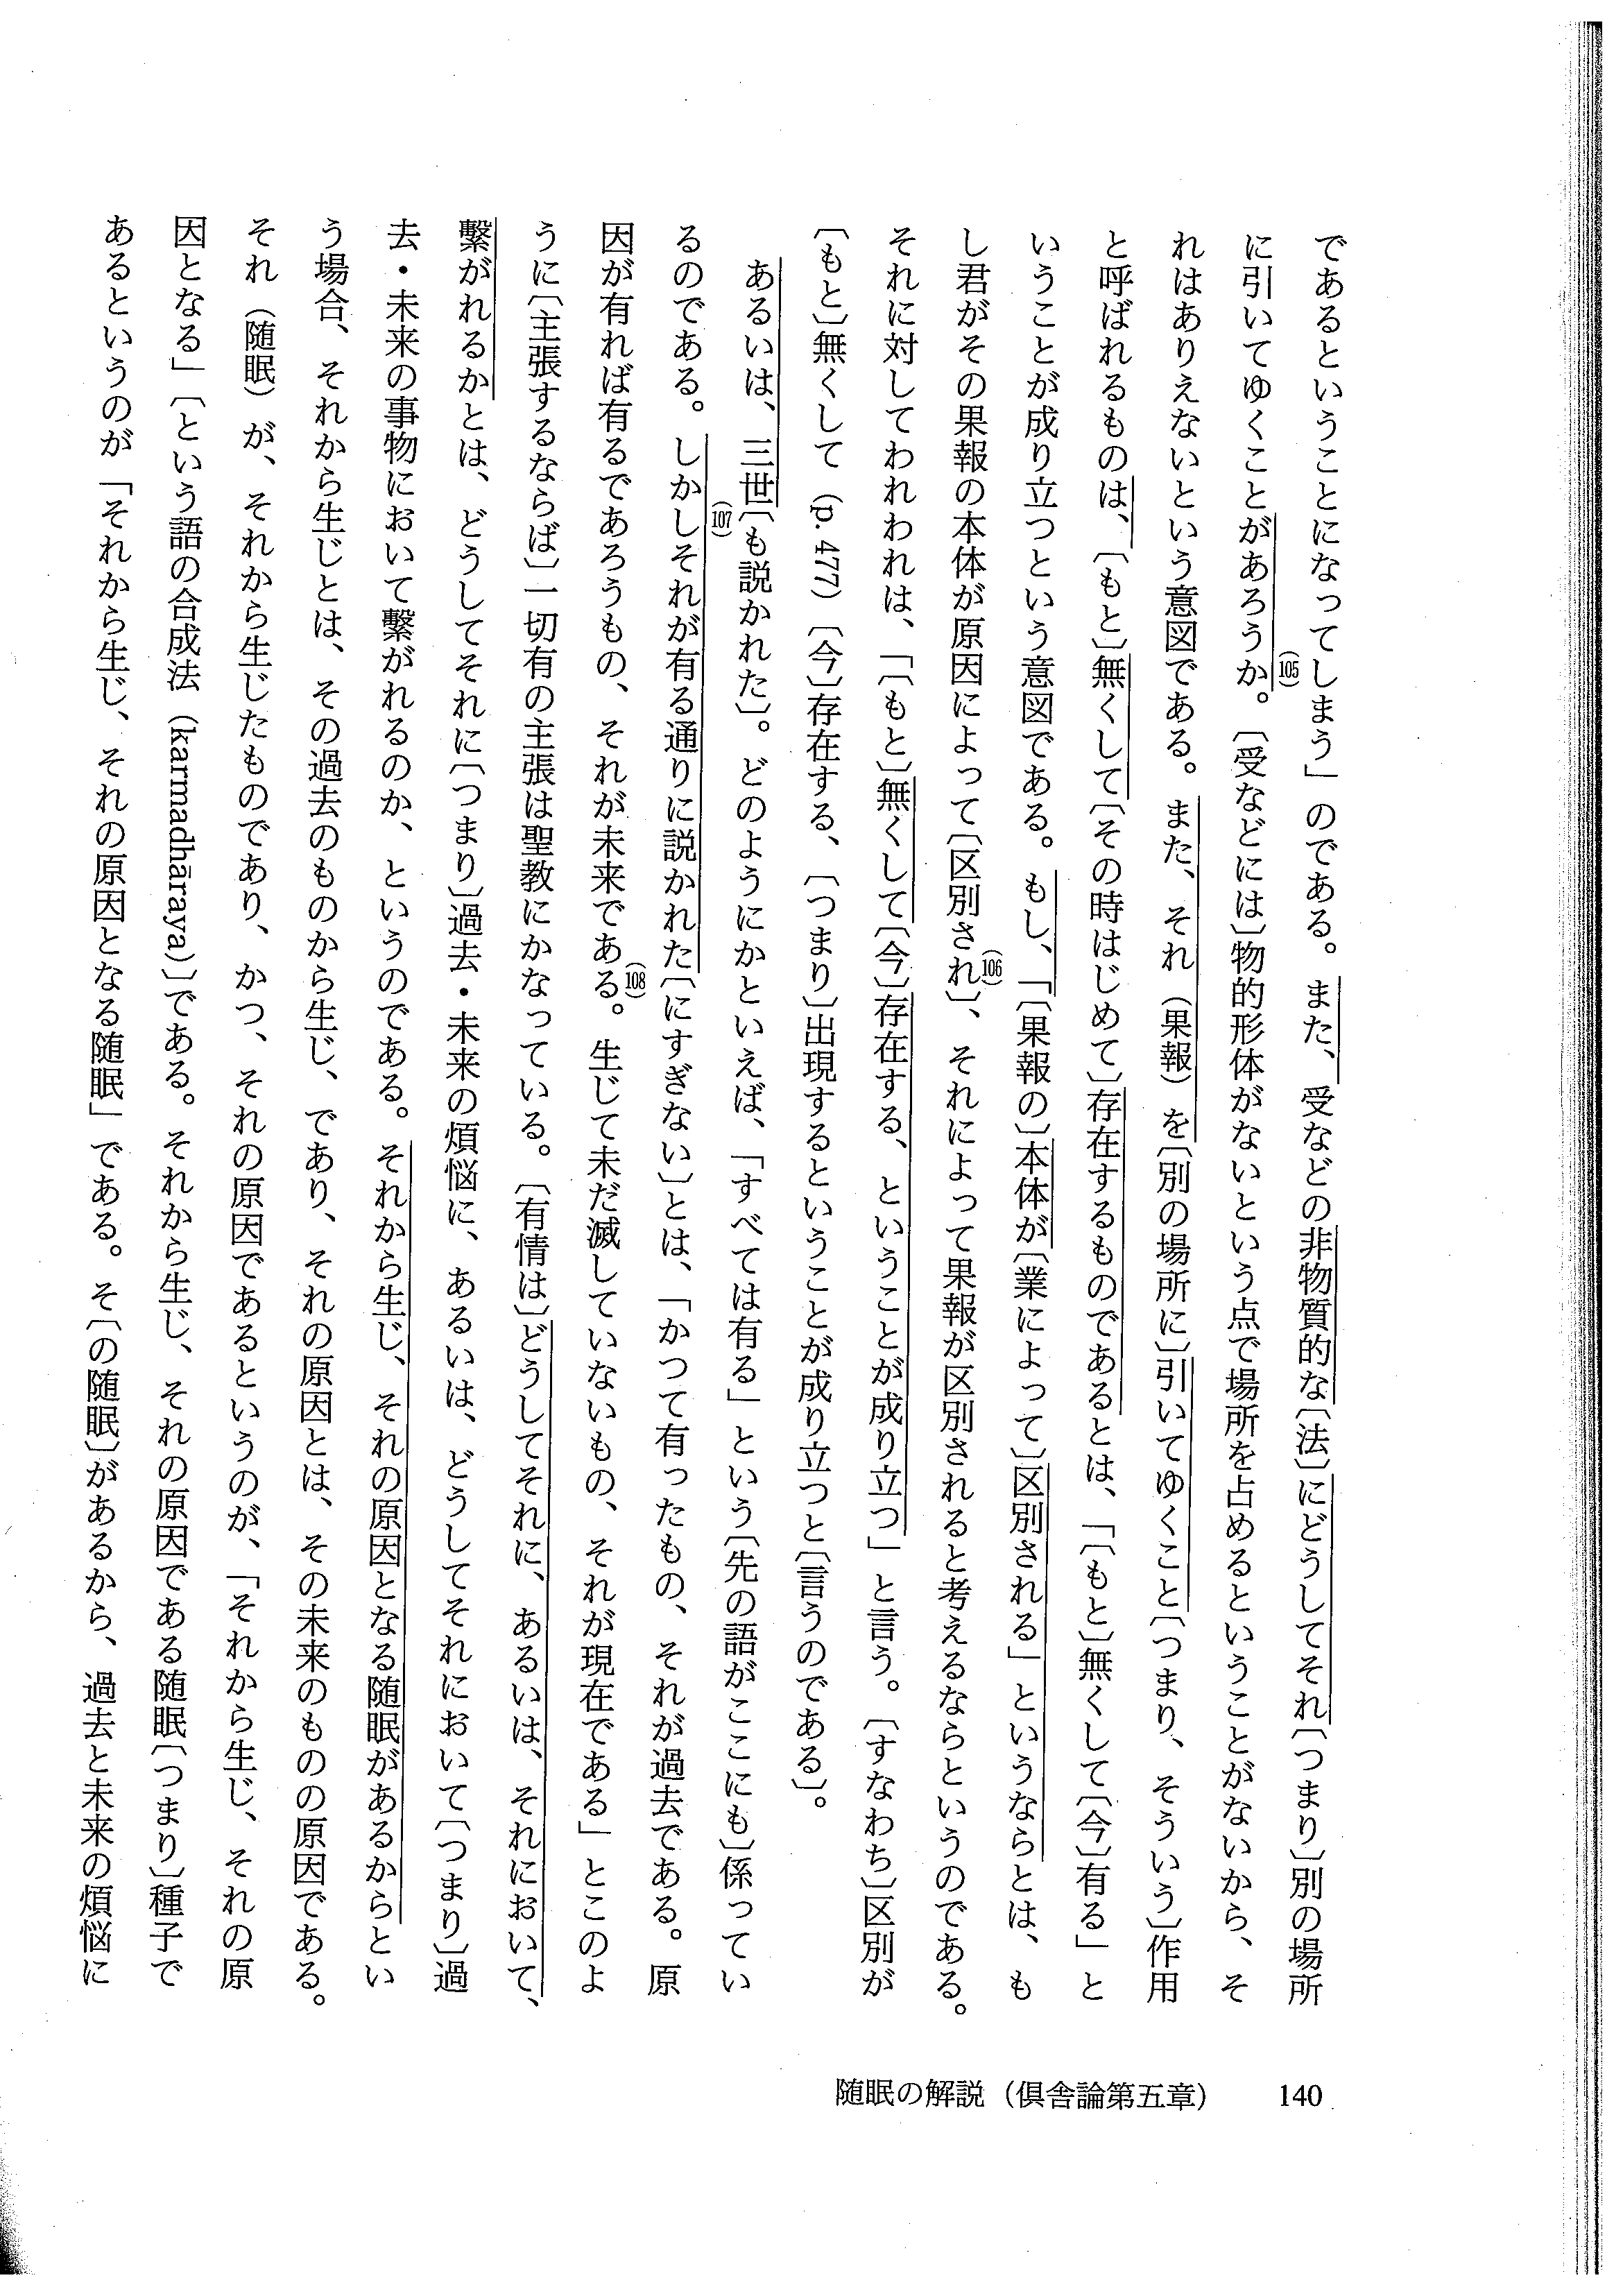 であるということになってしまう」のである。また、受などの非物質的な〔法〕にどうしてそれ〔つまり〕別の場所
に引いてゆくことがあろうか。(105)〔受などには〕物的形体がないという点で場所を占めるということがないから、そ
れはありえないという意図である。また、それ（果報）を〔別の場所に〕引いてゆくこと〔つまり、そういう〕作用
と呼ばれるものは、〔もと〕無くして〔その時はじめて〕存在するものであるとは、「〔もと〕無くして〔今〕有る」と
いうことが成り立つという意図である。もし、「〔果報の〕本体が〔業によって〕区別される」というならとは、も
し君がその果報の本体が原因によって〔区別され〕(106)、それによって果報が区別されると考えるならというのである。
それに対してわれわれは、「〔もと〕無くして〔今〕存在する、ということが成り立つ」と言う。〔すなわち〕区別が
〔もと〕無くして（p. 477）〔今〕存在する、〔つまり〕出現するということが成り立つと〔言うのである〕。
あるいは、三世(107)〔も説かれた〕。どのようにかといえば、「すべては有る」という〔先の語がここにも〕係ってい
るのである。しかしそれが有る通りに説かれた〔にすぎない〕とは、「かつて有ったもの、それが過去である。原
因が有れば有るであろうもの、それが未来である(108)。生じて未だ滅していないもの、それが現在である」とこのよ
うに〔主張するならば〕一切有の主張は聖教にかなっている。〔有情は〕どうしてそれに、あるいは、それにおいて、
繫がれるかとは、どうしてそれに〔つまり〕過去・未来の煩悩に、あるいは、どうしてそれにおいて〔つまり〕過
去・未来の事物において繫がれるのか、というのである。それから生じ、それの原因となる随眠があるからとい
う場合、それから生じとは、その過去のものから生じ、であり、それの原因とは、その未来のものの原因である。
それ（随眠）が、それから生じたものであり、かつ、それの原因であるというのが、「それから生じ、それの原
因となる」〔という語の合成法（karmadhāraya）〕である。それから生じ、それの原因である随眠〔つまり〕種子で
あるというのが「それから生じ、それの原因となる随眠」である。そ〔の随眠〕があるから、過去と未来の煩悩に
随眠の解説（倶舎論第五章） 140